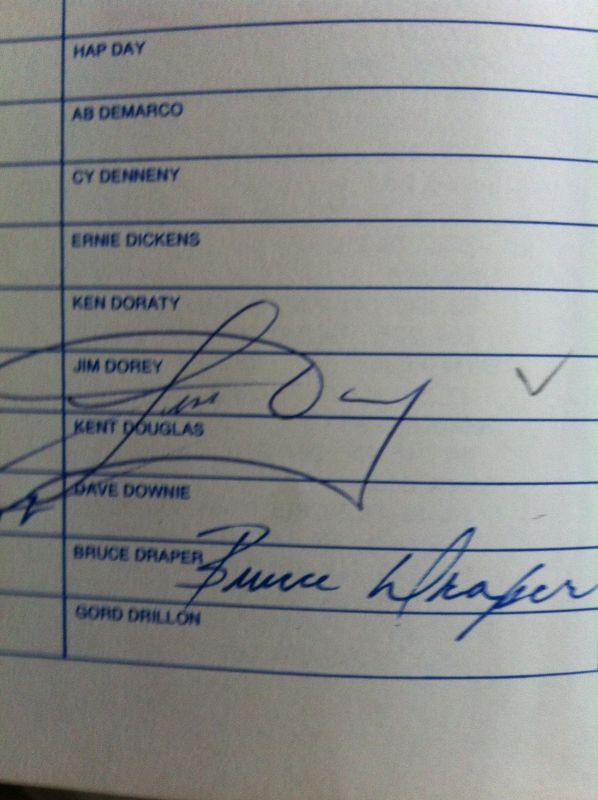 HAP DAY
AB DEMARCO
CY DENNENY
ERNIE DICKENS
KEN DORATY
JIM DOREY
KENT DOUGLAS
DAVE DOWNIE
BRUCE DRAPER
Bruce Draper
GORD DRILLON